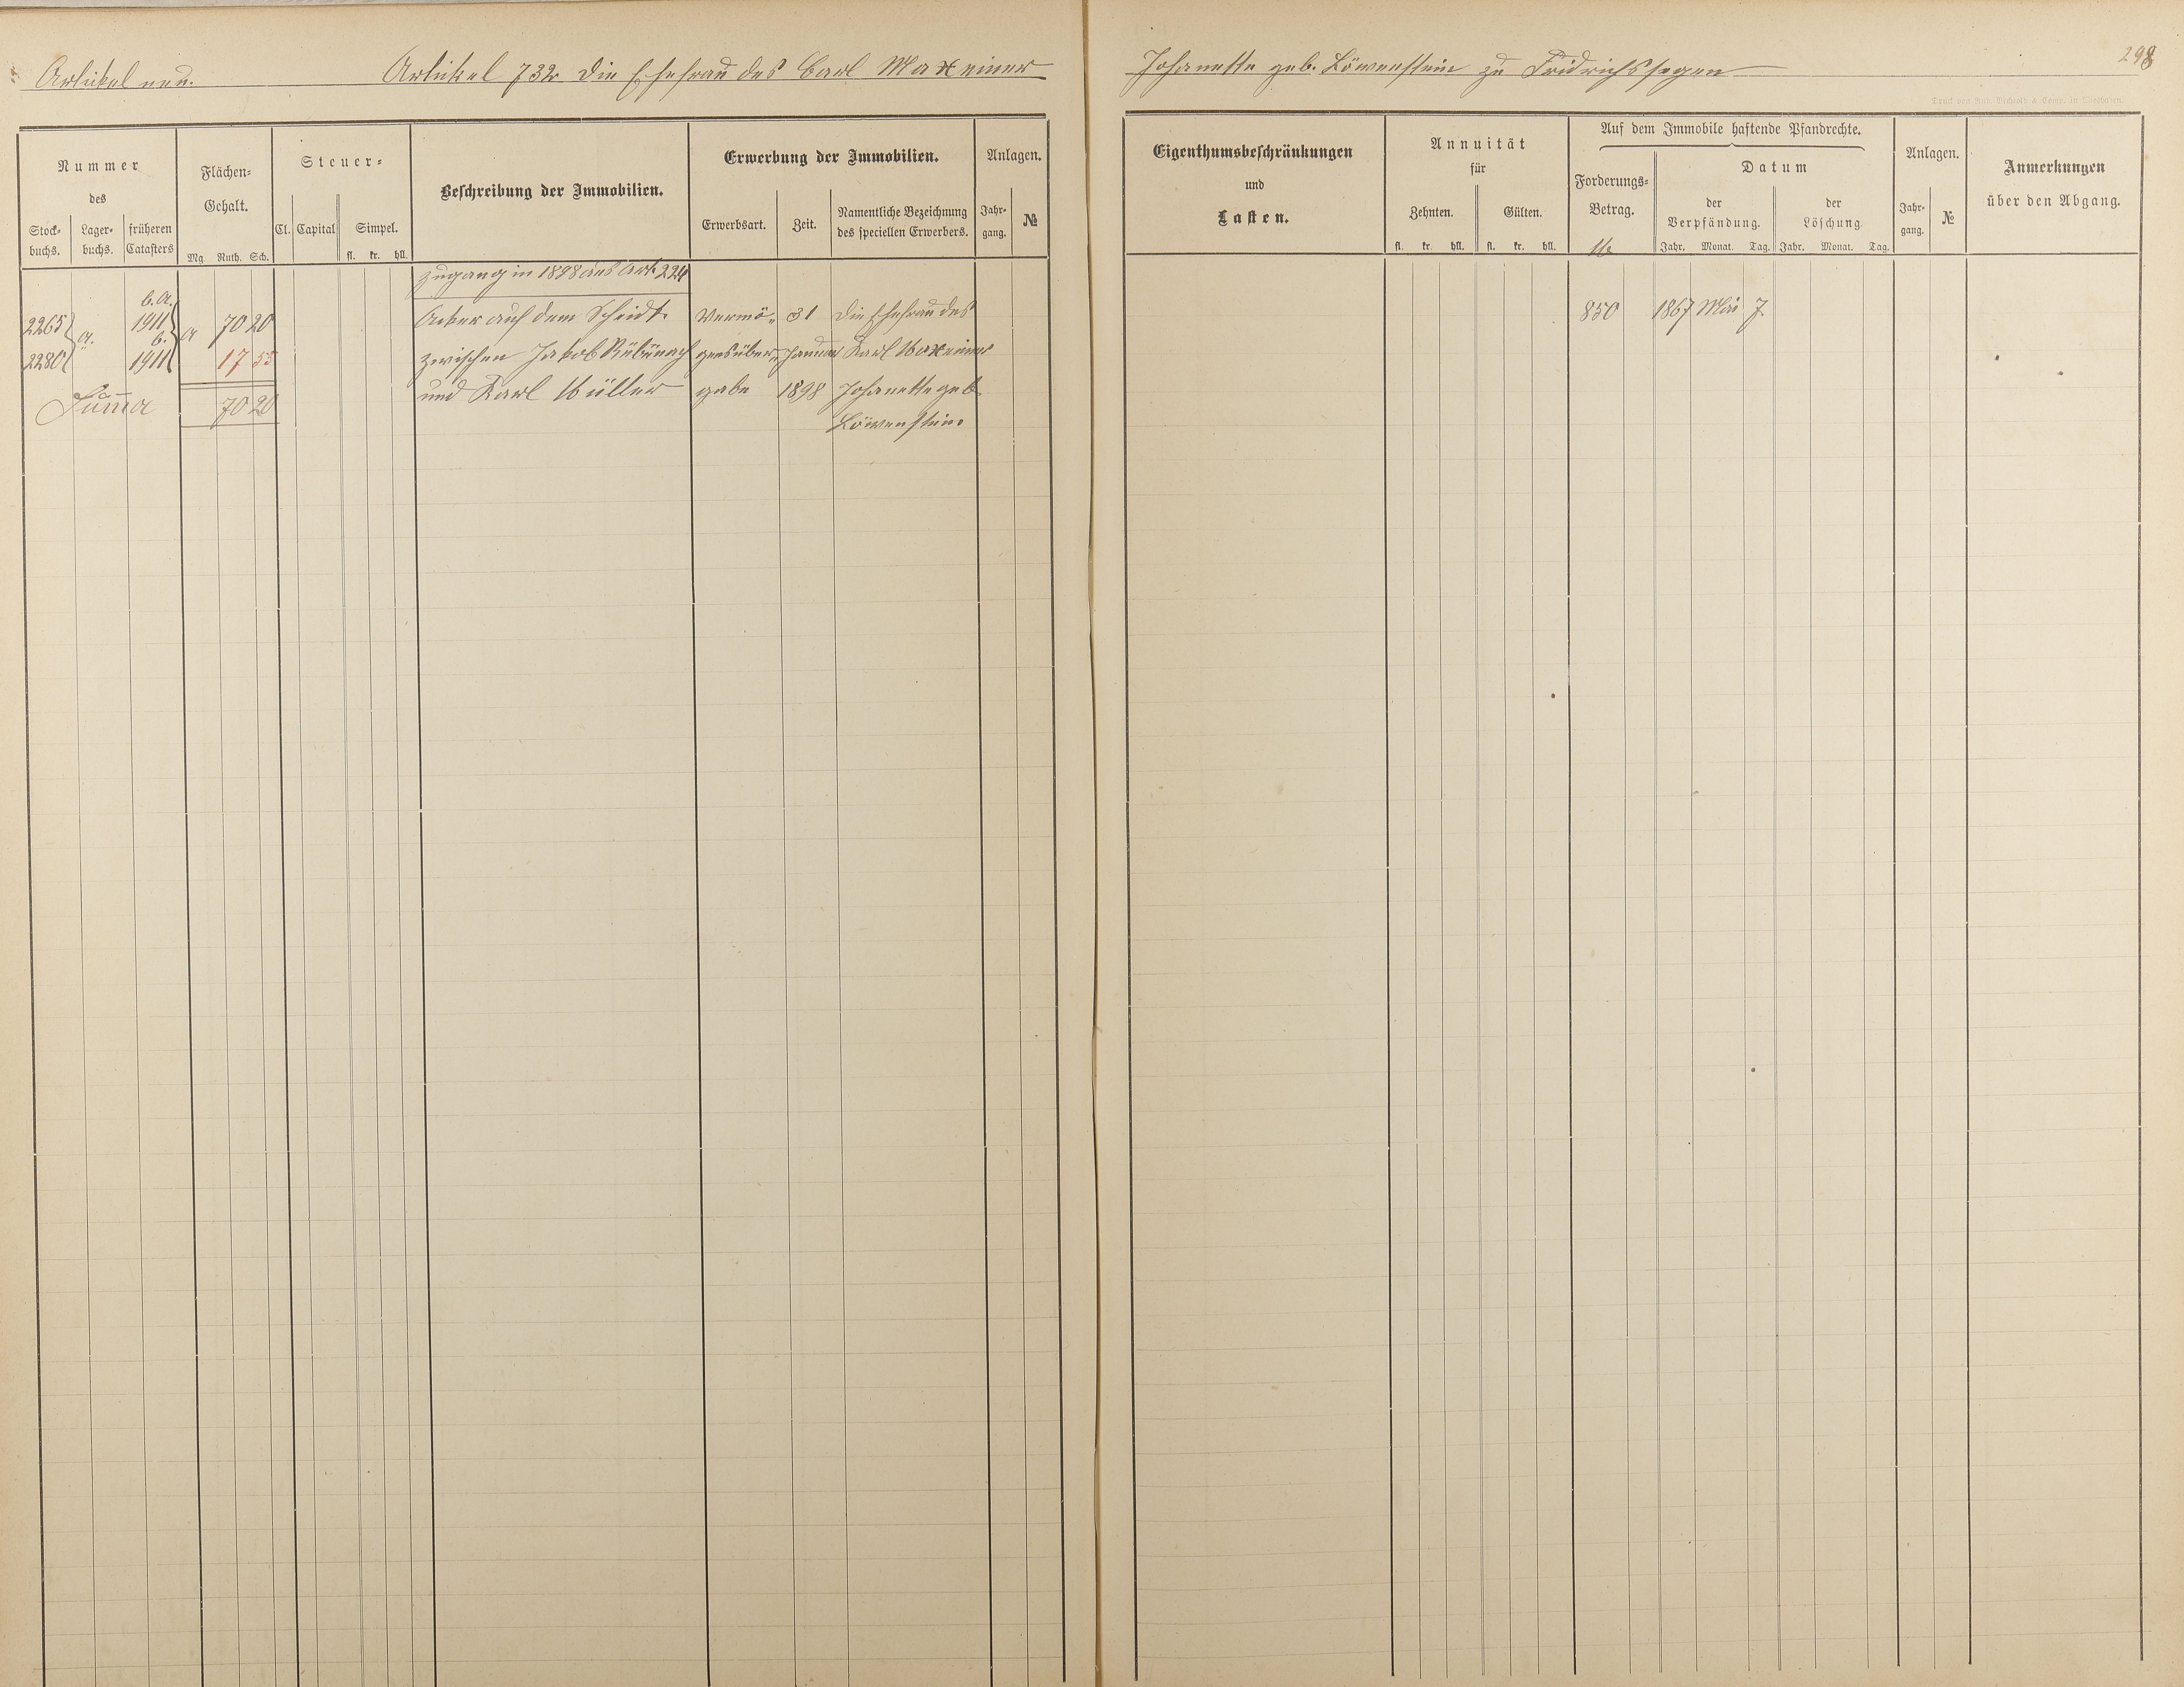 Artikel neu. Artikel 732 die Ehefrau des Carl Maxeiner Johanette geb. Löwenstein zu Fridrichssegen
298
Druck von Rud. Bechtold & Comp. in Wiesbaden.
Nummer
des
Stock-
buchs.
Lager-
buchs.
früheren
Catasters
Flächen-
Gehalt.
Mg. Ruth. Sch.
Steuer-
Cl. Capital Simpel.
fl. kr. hll.
Beschreibung der Immobilien.
Erwerbung der Immobilien.
Erwerbsart. Zeit.
Namentliche Bezeichnung
des speciellen Erwerbers.
Anlagen.
Jahr-
gang.
№
Eigenthumsbeschränkungen
und
Lasten.
Annuität
für
Zehnten. Gülten.
fl. kr. hll. fl. kr. hll.
Auf dem Immobile haftende Pfandrechte.
Forderungs-
Betrag.
Datum
der
Verpfändung.
der
Löschung.
Jahr. Monat. Tag. Jahr. Monat. Tag.
Anlagen.
Jahr-
gang.
№
Anmerkungen
über den Abgang.
Zugang in 1898 aus Art. 224
b. a.
2265 1911 a 70 20 Acker auf dem Scheidt. Vermö- 31 Die Ehefrau des 850 1867 Mai 7.
a. b.
2280 1911 17 55 zwischen Jakob Rübenach gensüber- Januar Karl Maxeiner
Summa 70 20 und Karl Müller gabe 1898 Johanette geb.
Löwenstein.